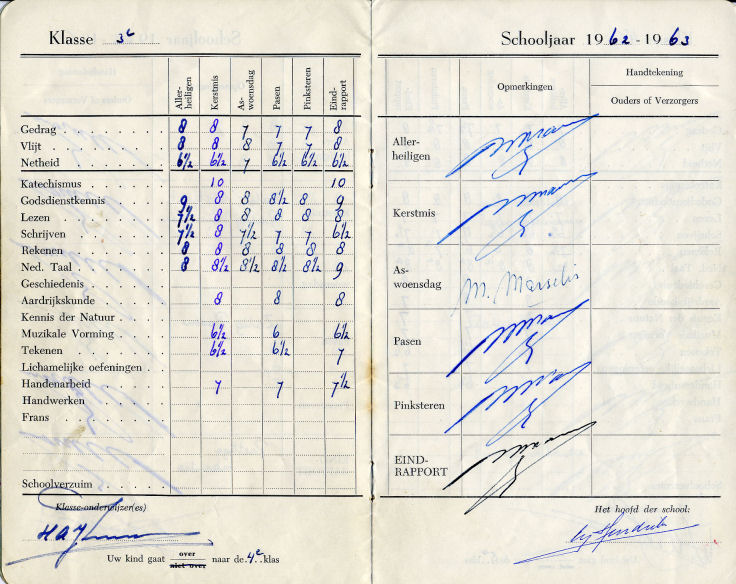 Klasse 3e
Aller-heiligen Kerstmis As-woensdag Pasen Pinksteren Eind-rapport
Gedrag 8 8 7 7 7 8
Vlijt 8 8 8 7 7 8
Netheid 6½ 6½ 7 6½ 6½ 6½
Katechismus 10 10
Godsdienstkennis 9 8 8 8½ 8 9
Lezen 7½ 8 8 8 8 8
Schrijven 7½ 8 7½ 7 7 6½
Rekenen 8 8 8 8 8 8
Ned. Taal 8 8½ 8½ 8½ 8½ 9
Geschiedenis
Aardrijkskunde 8 8 8
Kennis der Natuur
Muzikale Vorming 6½ 6 6½
Tekenen 6½ 6½ 7
Lichamelijke oefeningen
Handenarbeid 7 7 7½
Handwerken
Frans
Schoolverzuim
Klasse-onderwijzer(es)
Uw kind gaat over / niet over naar de 4e klas
Schooljaar 1962-1963
Opmerkingen
Handtekening
Ouders of Verzorgers
Aller-
heiligen
Kerstmis
As-
woensdag M. Marselis
Pasen
Pinksteren
EIND-
RAPPORT
Het hoofd der school: